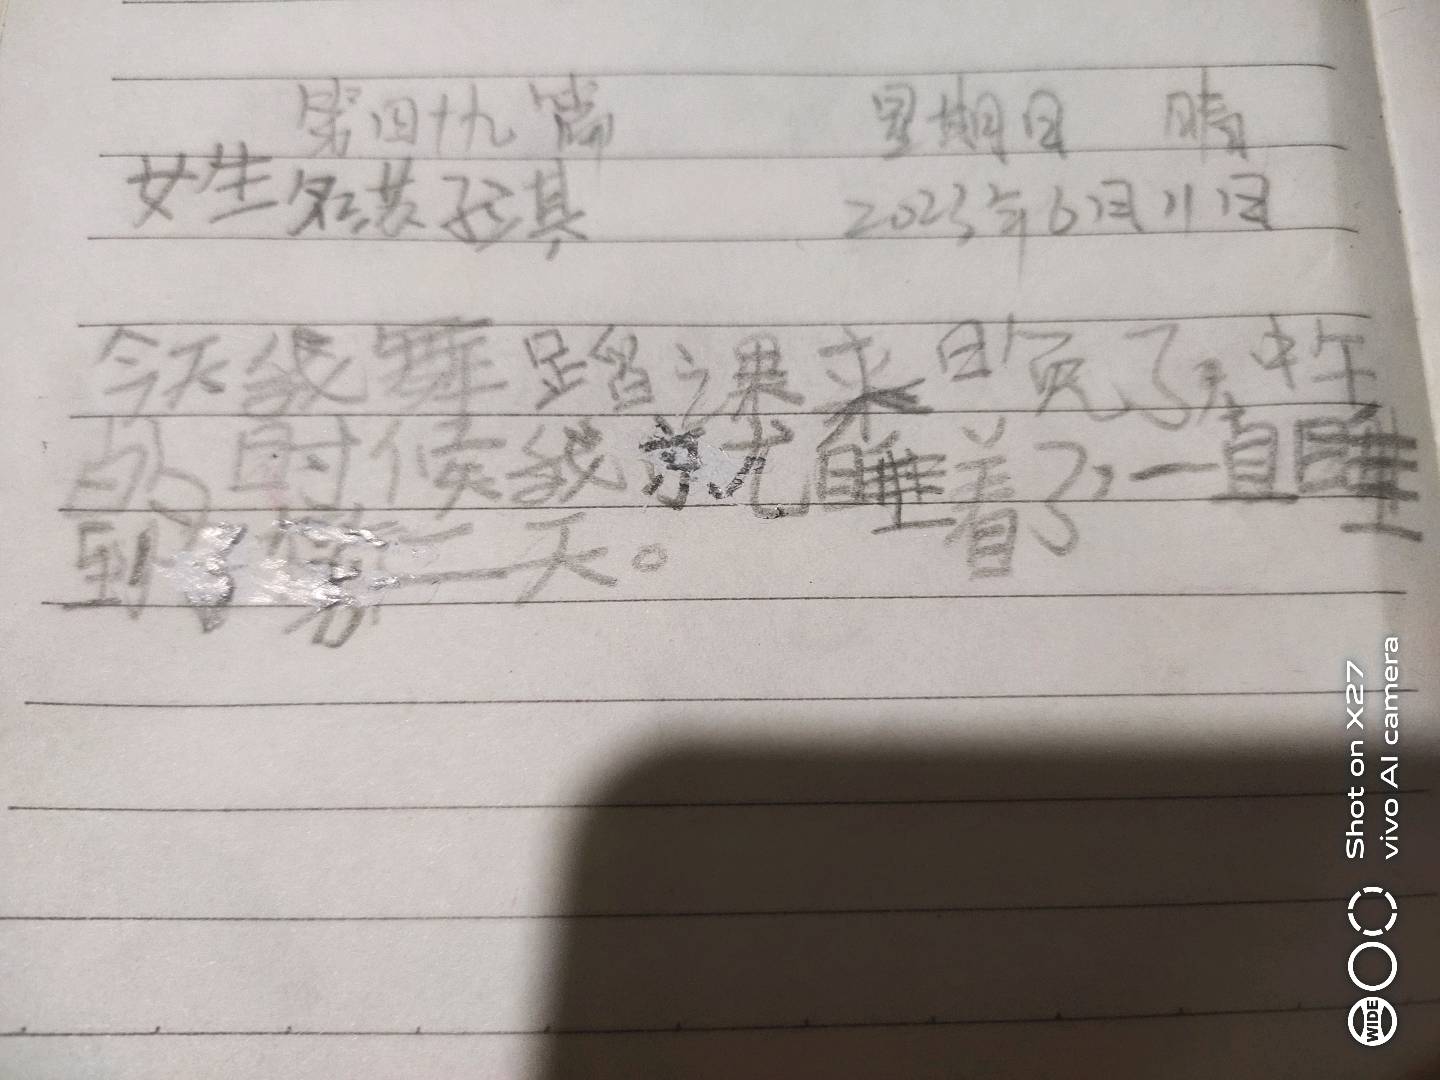 第四十九篇 星期日 晴
女生 2023年6月11日
今天我舞蹈课来晚了,中午
的时候我就睡着了,一直睡
到了第二天。
Shot on X27
vivo AI camera
WIDE